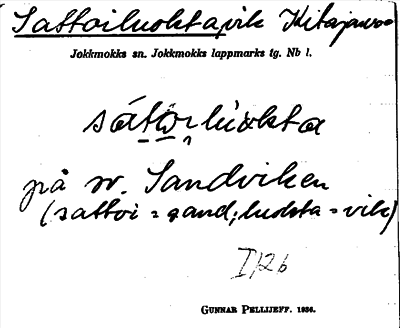 Sattoiluokta, vik Kitajaur
Jokkmokks sn. Jokkmokks lappmarks tg. Nb l.
sáttoi luokta
på sv. Sandviken
(sattoi = sand; luokta = vik)
I 12 b
GUNNAR PELLIJEFF. 1936.